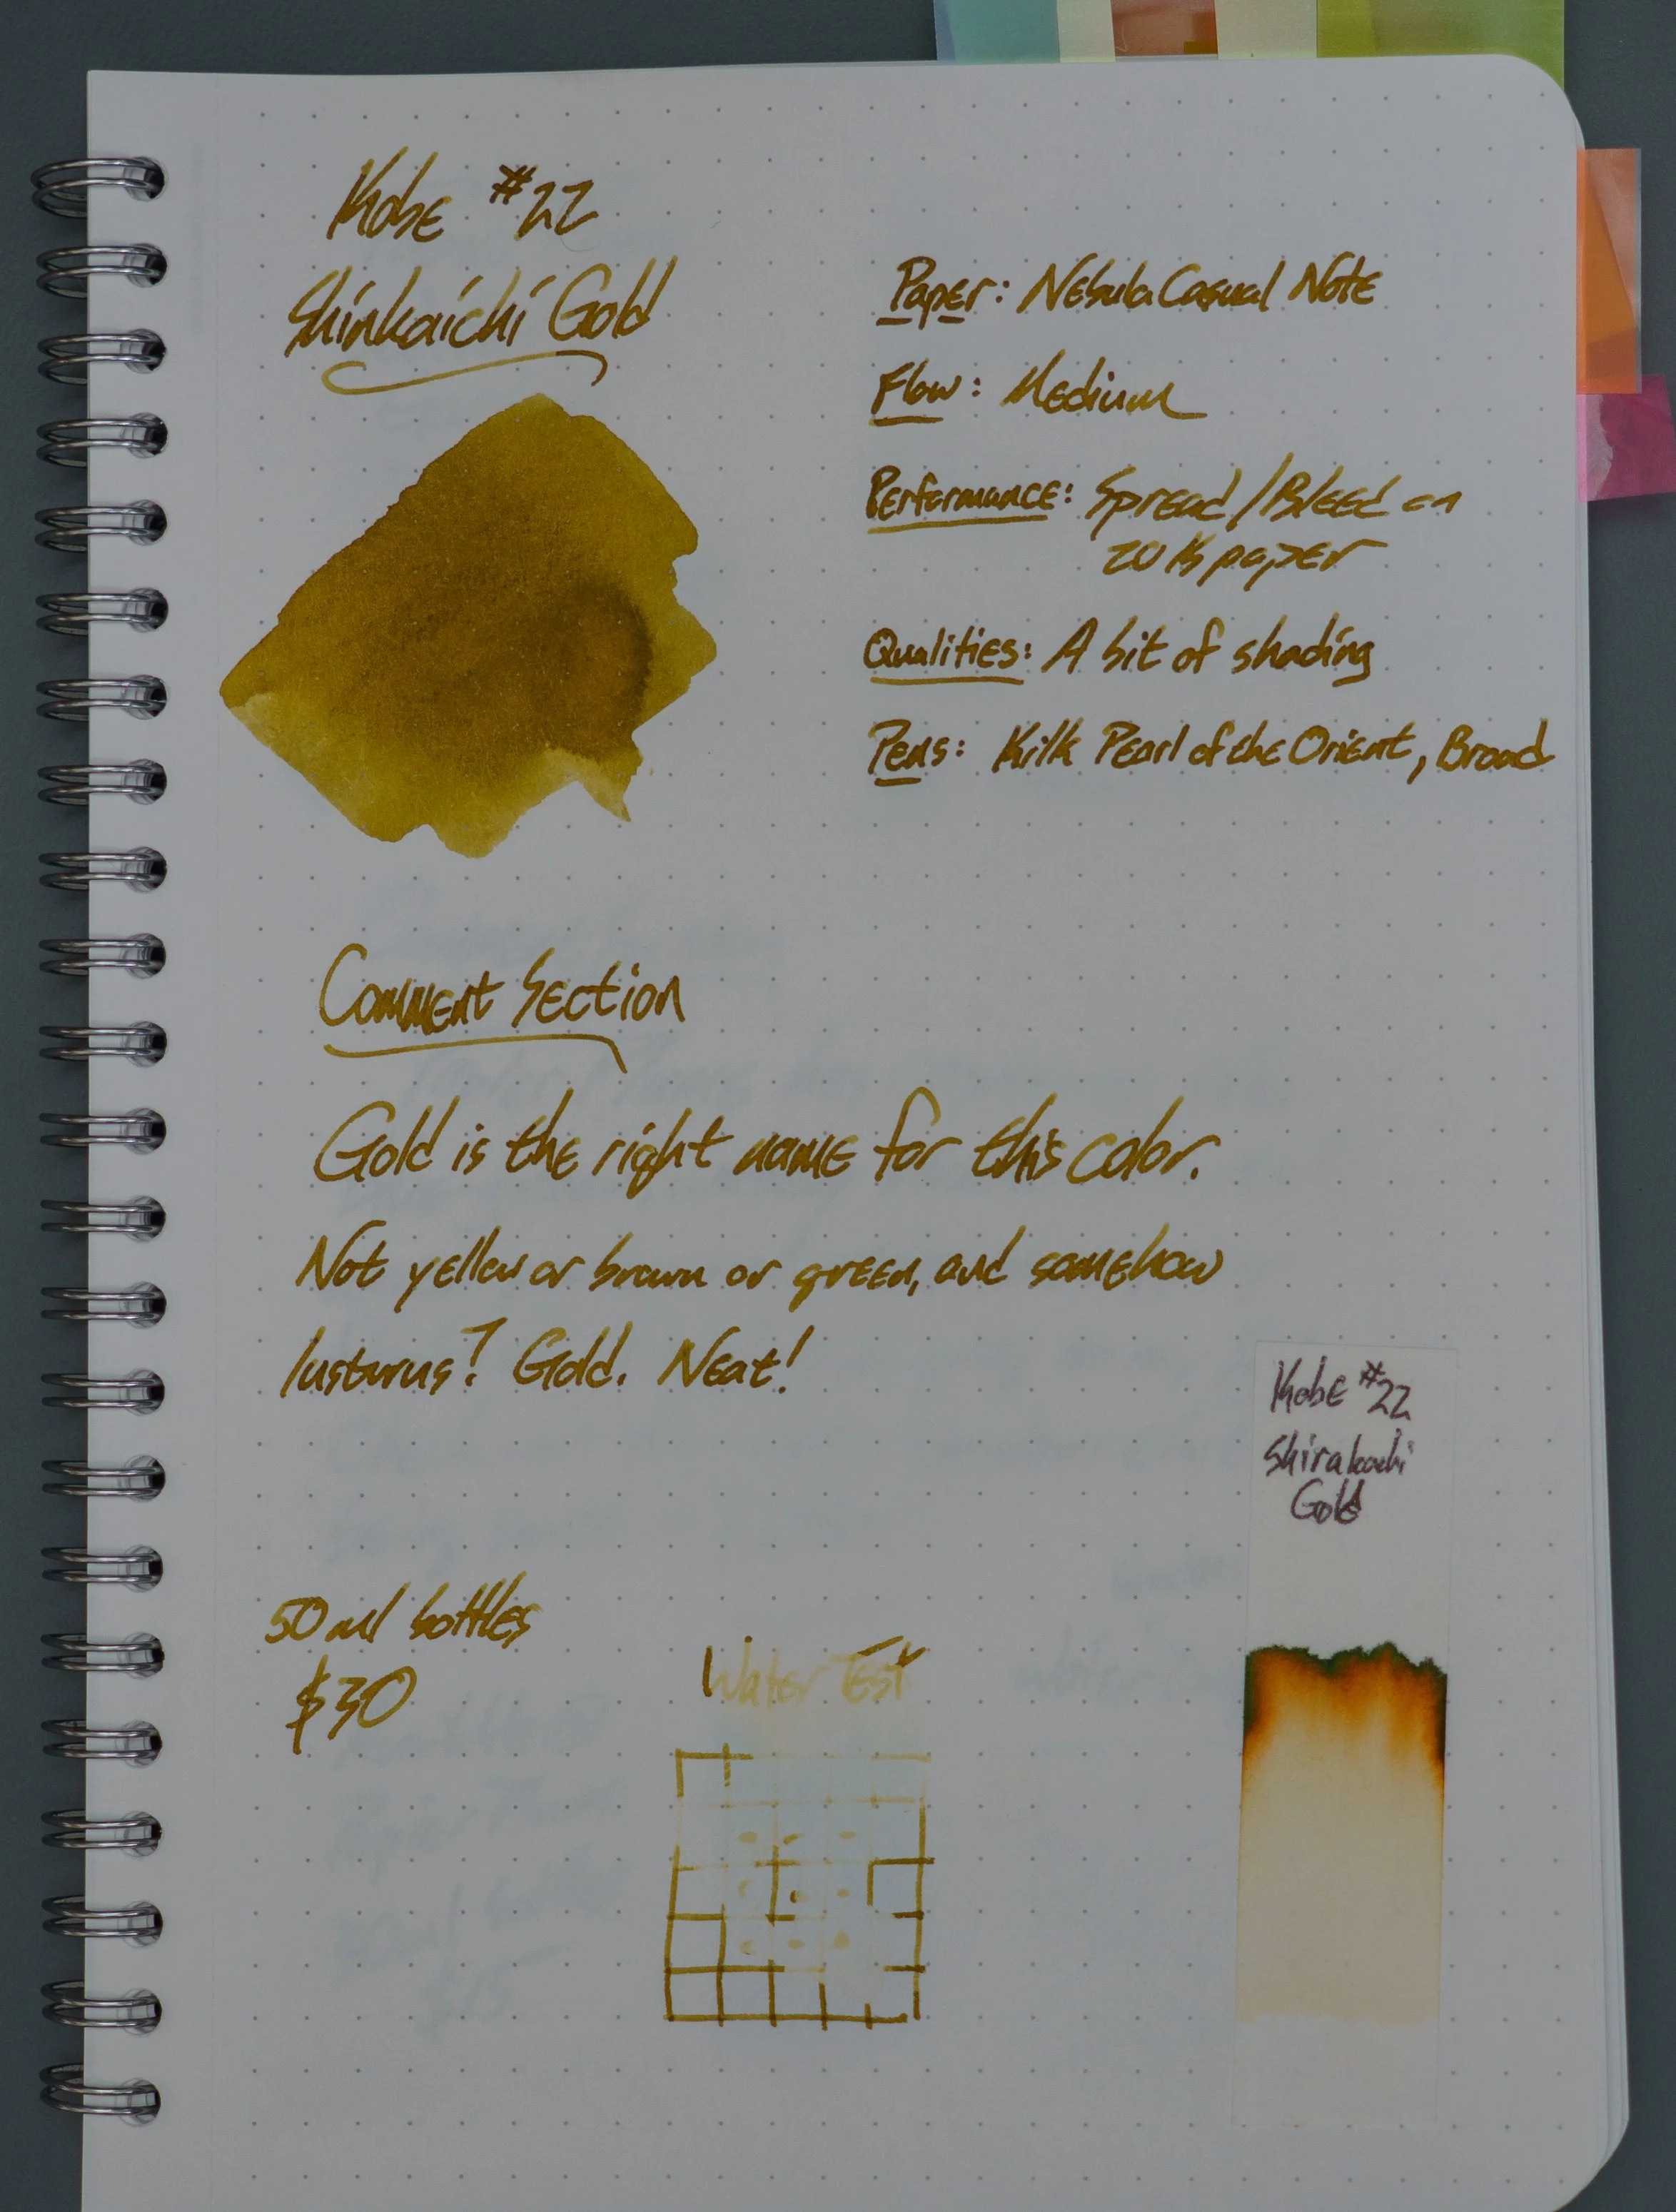 Kobe #22
Shinkaichi Gold
Paper: Nebula Casual Note
Flow: Medium
Performance: Spread/Bleed on
20 lb paper
Qualities: A bit of shading
Pens: Kilk Pearl of the Orient, Broad
Comment Section
Gold is the right name for this color.
Not yellow or brown or green, and somehow
lusturus? Gold. Neat!
50ml bottles
$30
Water Test
Kobe #22
Gold